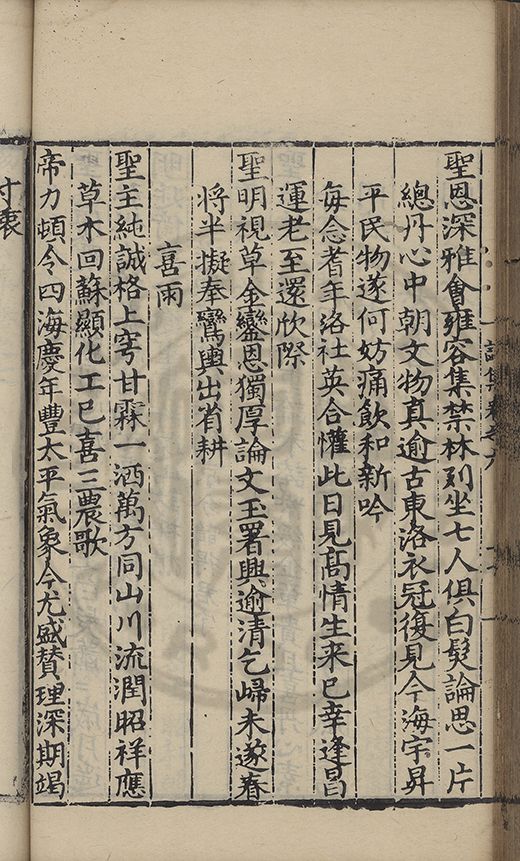 聖恩深雅會雍容集禁林列坐七人俱白髮論思一片
總丹心中朝文物真逾古東洛衣冠復見今海宇昇
平民物遂何妨痛飲和新吟
每念耆年洛社英合懽此日見髙情生来已幸逢昌
運老至還欣際
聖明視草金鑾恩獨厚論文玉署興逾清乞歸未遂春
将半擬奉鸞輿出省耕
喜雨
聖主純誠格上穹甘霖一洒萬方同山川流潤昭祥應
草木回蘇顯化工已喜三農歌
帝力頓令四海慶年豐太平氣象今尤盛賛理深期竭
寸衷